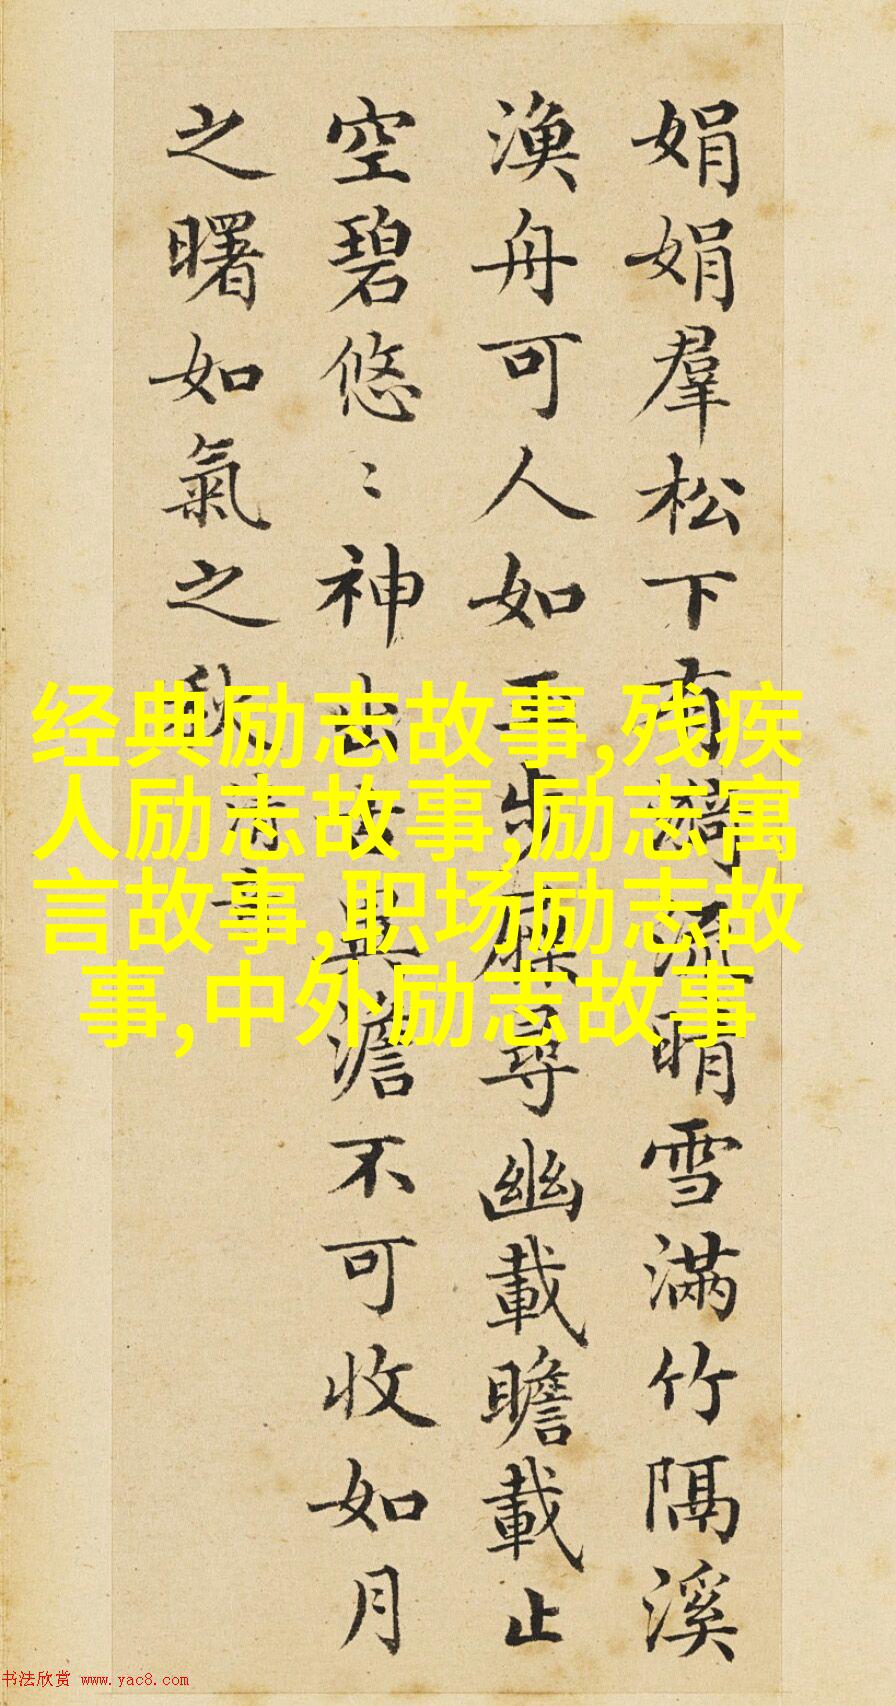 娟娟羣松下有漪流晴雪滿竹隔溪
漁舟可人如玉步屧尋幽載瞻載止
空碧悠〻神出古異澹不可收如月
之曙如氣之秋
清奇
经典励志故事,残疾
人励志故事,励志寓
言故事,职场励志故
事,中外励志故事
书法欣赏 www.yac8.com